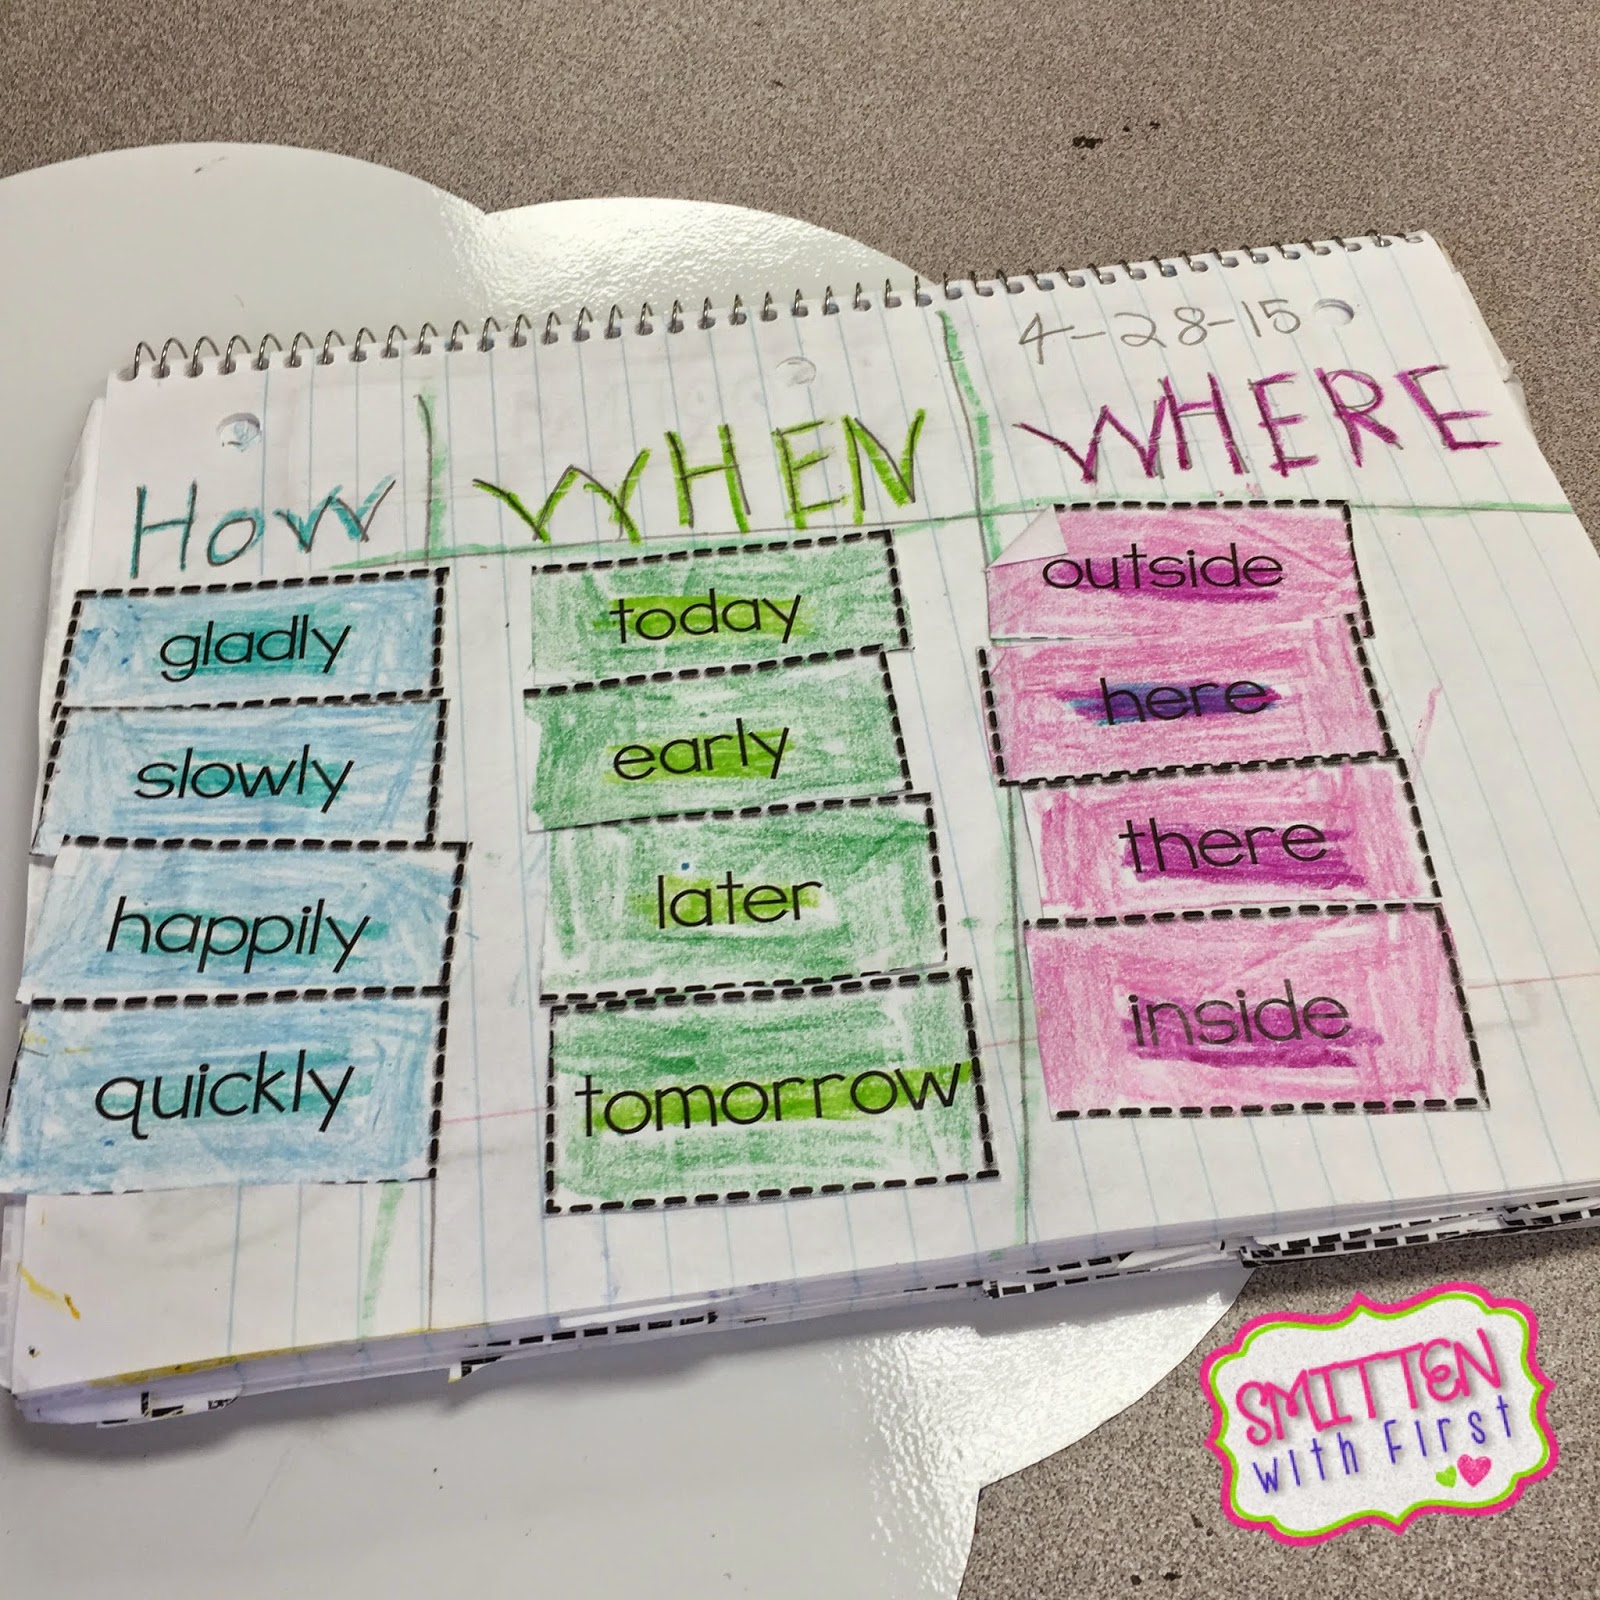 4-28-15
HOW
WHEN
WHERE
gladly
slowly
happily
quickly
today
early
later
tomorrow
outside
here
there
inside
SMITTEN
with First